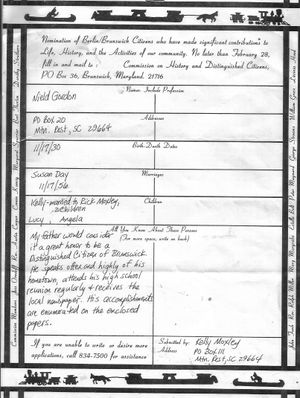 Nomination of Berlin/Brunswick Citizens who have made significant contributions to
Life, History, and the Activities of our community. No later than February 28,
fill in and mail to: Commission on History and Distinguished Citizens,
PO Box 36, Brunswick, Maryland. 21716
Names: Include Profession
Nield Gordon
Addresses
PO Box 20
Mtn. Rest, SC 29664
Birth-Death Dates
11/17/30
Marriages
Susan Day
11/17/56
Children
Kelly-married to Rick Moxley,
2 children
Lucy, Angela
All You Know About These Persons
(For more space, write on back)
My father would consider
it a great honor to be a
Distinguished Citizen of Brunswick.
He speaks often and highly of his
hometown, attends his high school
reunion regularly & receives the
local newspaper. His accomplishments
are enumerated on the enclosed
papers.
If you are unable to write or desire more
applications, call 834-7500 for assistance
Submitted by: Kelly Moxley
Address PO Box 111
Mtn. Rest, SC 29664